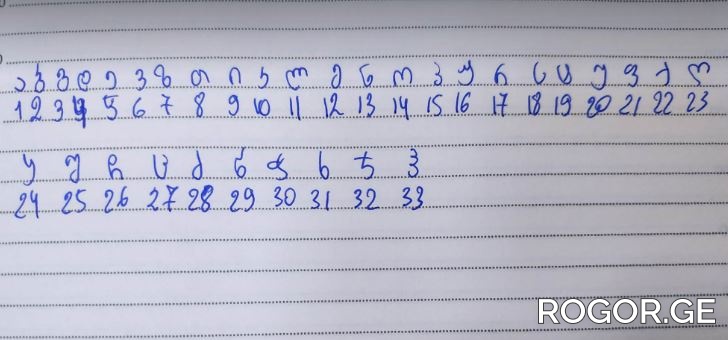 ა ბ გ დ ე ვ ზ თ ი კ ლ მ ნ ო პ ჟ რ ს ტ უ ფ ქ ღ
1 2 3 4 5 6 7 8 9 10 11 12 13 14 15 16 17 18 19 20 21 22 23
ყ შ ჩ ც ძ წ ჭ ხ ჯ ჰ
24 25 26 27 28 29 30 31 32 33
ROGOR.GE